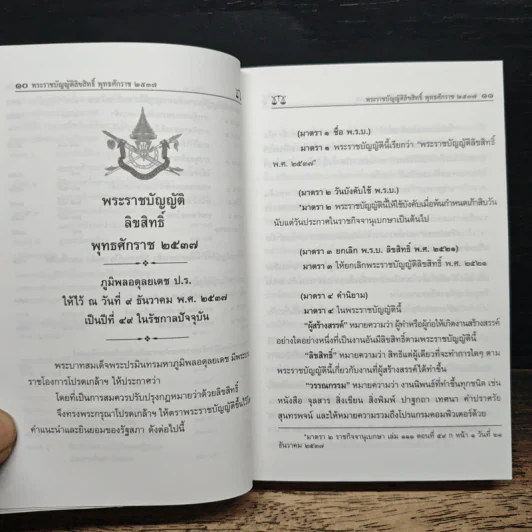 ๑๐ พระราชบัญญัติลิขสิทธิ์ พุทธศักราช ๒๕๓๗
พระราชบัญญัติ
ลิขสิทธิ์
พุทธศักราช ๒๕๓๗
ภูมิพลอดุลยเดช ป.ร.
ให้ไว้ ณ วันที่ ๙ ธันวาคม พ.ศ. ๒๕๓๗
เป็นปีที่ ๔๙ ในรัชกาลปัจจุบัน
พระบาทสมเด็จพระปรมินทรมหาภูมิพลอดุลยเดช มีพระบรม
ราชโองการโปรดเกล้าฯ ให้ประกาศว่า
โดยที่เป็นการสมควรปรับปรุงกฎหมายว่าด้วยลิขสิทธิ์
จึงทรงพระกรุณาโปรดเกล้าฯ ให้ตราพระราชบัญญัติขึ้นไว้โดย
คำแนะนำและยินยอมของรัฐสภา ดังต่อไปนี้
พระราชบัญญัติลิขสิทธิ์ พุทธศักราช ๒๕๓๗ ๑๑
(มาตรา ๑ ชื่อ พ.ร.บ.)
มาตรา ๑ พระราชบัญญัตินี้เรียกว่า "พระราชบัญญัติลิขสิทธิ์
พ.ศ. ๒๕๓๗"
(มาตรา ๒ วันบังคับใช้ พ.ร.บ.)
*มาตรา ๒ พระราชบัญญัตินี้ให้ใช้บังคับเมื่อพ้นกำหนดเก้าสิบวัน
นับแต่วันประกาศในราชกิจจานุเบกษาเป็นต้นไป
(มาตรา ๓ ยกเลิก พ.ร.บ. ลิขสิทธิ์ พ.ศ. ๒๕๒๑)
มาตรา ๓ ให้ยกเลิกพระราชบัญญัติลิขสิทธิ์ พ.ศ. ๒๕๒๑
(มาตรา ๔ คำนิยาม)
มาตรา ๔ ในพระราชบัญญัตินี้
"ผู้สร้างสรรค์" หมายความว่า ผู้ทำหรือผู้ก่อให้เกิดงานสร้างสรรค์
อย่างใดอย่างหนึ่งที่เป็นงานอันมีลิขสิทธิ์ตามพระราชบัญญัตินี้
"ลิขสิทธิ์" หมายความว่า สิทธิแต่ผู้เดียวที่จะทำการใดๆ ตาม
พระราชบัญญัตินี้เกี่ยวกับงานที่ผู้สร้างสรรค์ได้ทำขึ้น
"วรรณกรรม" หมายความว่า งานนิพนธ์ที่ทำขึ้นทุกชนิด เช่น
หนังสือ จุลสาร สิ่งเขียน สิ่งพิมพ์ ปาฐกถา เทศนา คำปราศรัย
สุนทรพจน์ และให้หมายความรวมถึงโปรแกรมคอมพิวเตอร์ด้วย
*มาตรา ๒ ราชกิจจานุเบกษา เล่ม ๑๑๑ ตอนที่ ๕๙ ก หน้า ๑ วันที่ ๒๑
ธันวาคม ๒๕๓๗